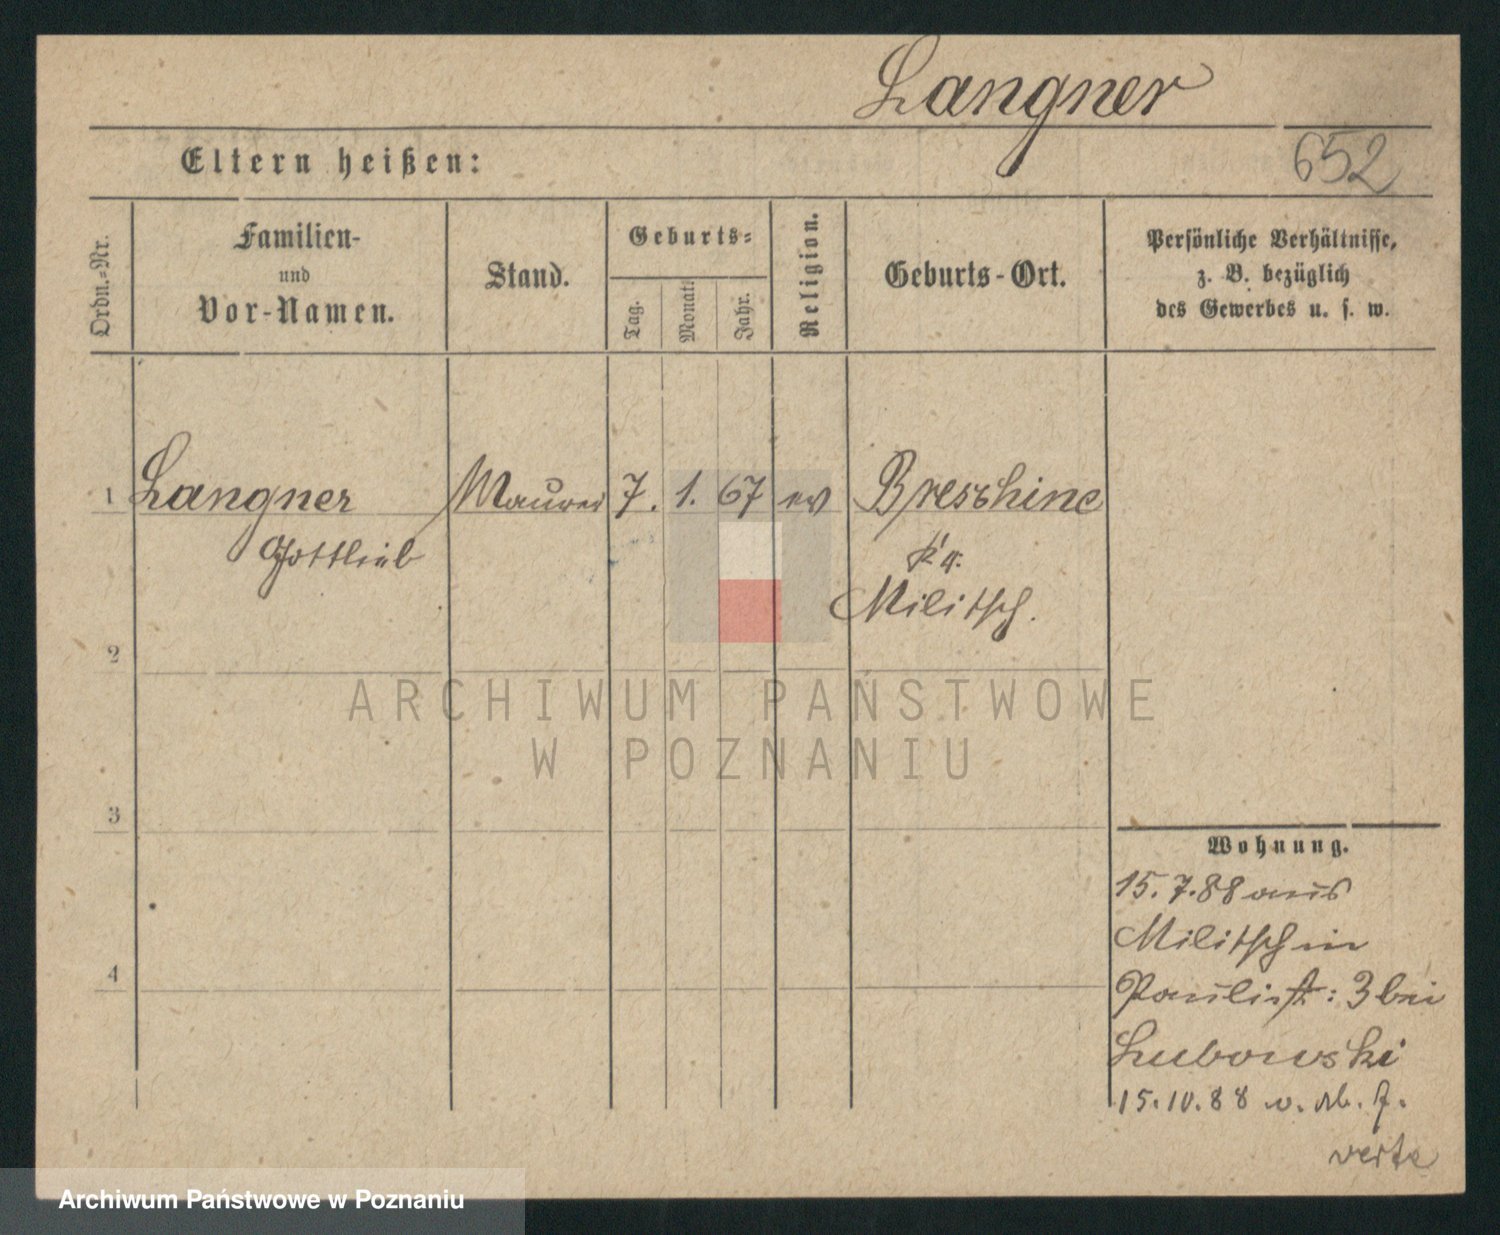 Langner
652
Eltern heißen:
Ordn.-Nr.
Familien-
und
Vor-Namen.
Stand.
Geburts-
Tag.
Monat.
Jahr.
Religion.
Geburts-Ort.
Persönliche Verhältnisse,
z. B. bezüglich
des Gewerbes u. s. w.
1 Langner Maurer 7. 1. 67 ev Breschine
Gottlieb Kr.
Militsch.
2
3
4
ARCHIWUM PAŃSTWOWE
W POZNANIU
Wohnung.
15.7.88 aus
Militsch in
Paulist: 3 bei
Lubowski
15.10.88 v.
verte
Archiwum Państwowe w Poznaniu